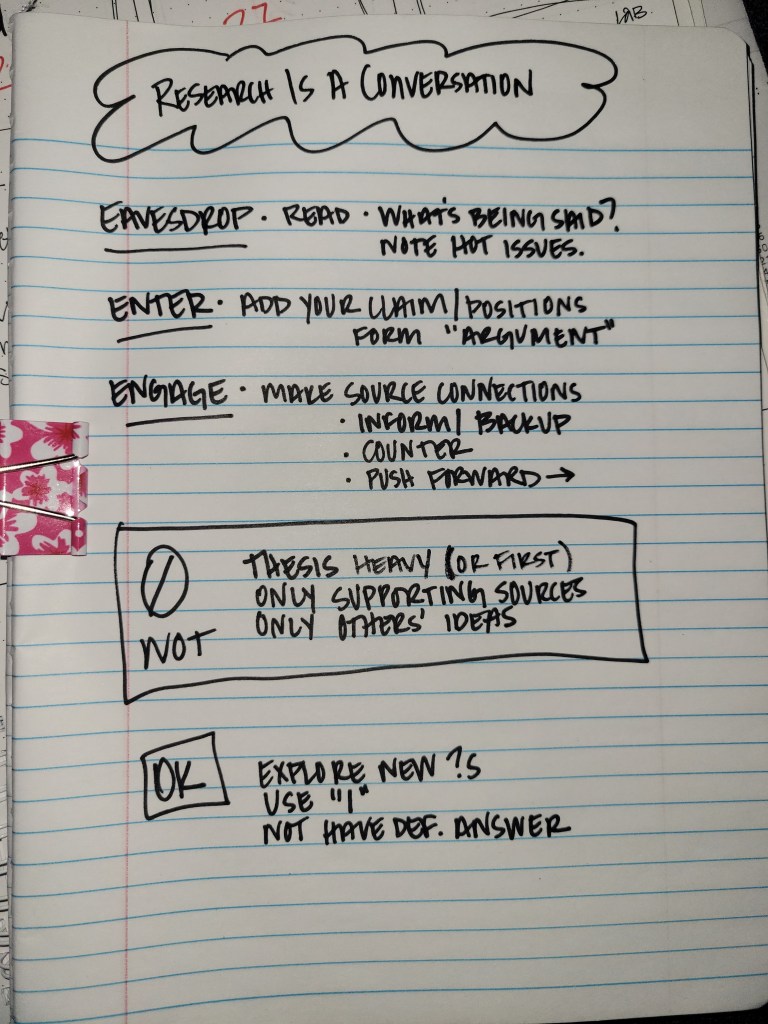 22
LAB.
RESEARCH IS A CONVERSATION
EAVESDROP · READ · WHAT'S BEING SAID?
NOTE HOT ISSUES.
ENTER · ADD YOUR CLAIM/POSITIONS
FORM "ARGUMENT"
ENGAGE · MAKE SOURCE CONNECTIONS
· INFORM/BACKUP
· COUNTER
· PUSH FORWARD →
NOT
THESIS HEAVY (OR FIRST)
ONLY SUPPORTING SOURCES
ONLY OTHERS' IDEAS
OK
EXPLORE NEW ?S
USE "I"
NOT HAVE DEF. ANSWER